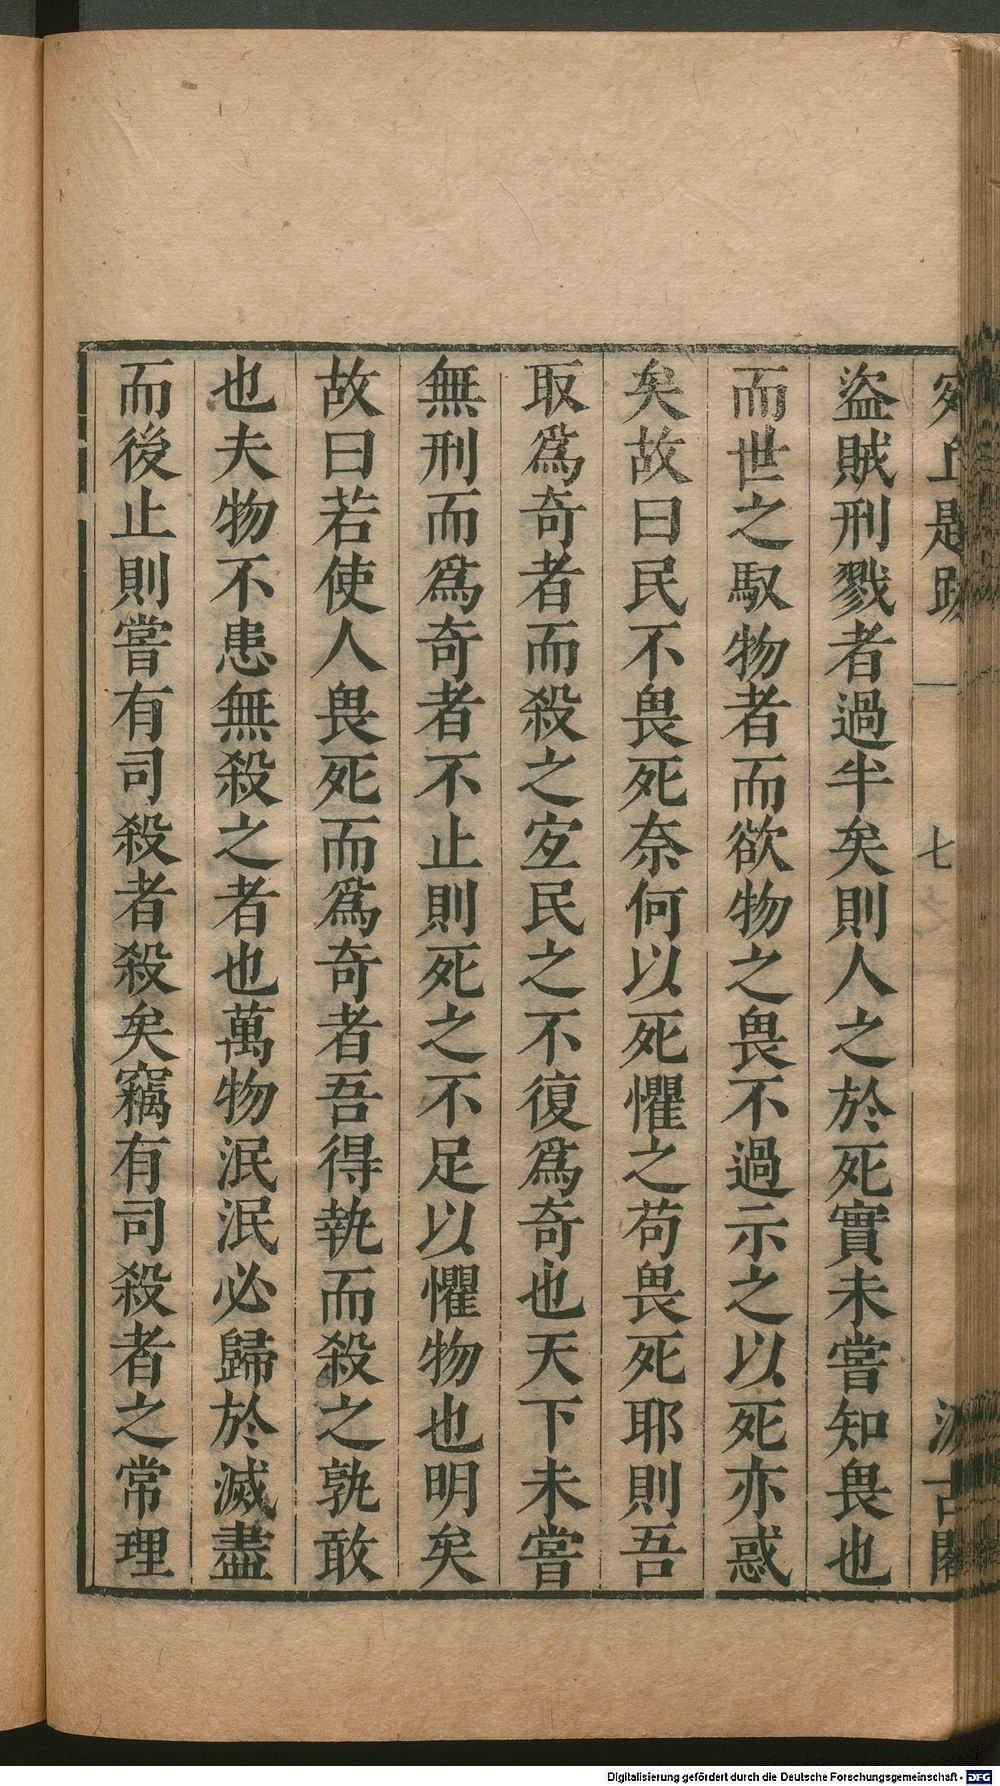 宛丘題跋
七
汲古閣
盜賊刑戮者過半矣則人之於死實未嘗知畏也
而世之馭物者而欲物之畏不過示之以死亦惑
矣故曰民不畏死奈何以死懼之苟畏死耶則吾
取爲奇者而殺之宐民之不復爲奇也天下未嘗
無刑而爲奇者不止則死之不足以懼物也明矣
故曰若使人畏死而爲奇者吾得執而殺之孰敢
也夫物不患無殺之者也萬物泯泯必歸於滅盡
而後止則嘗有司殺者殺矣竊有司殺者之常理
Digitalisierung gefördert durch die Deutsche Forschungsgemeinschaft - DFG